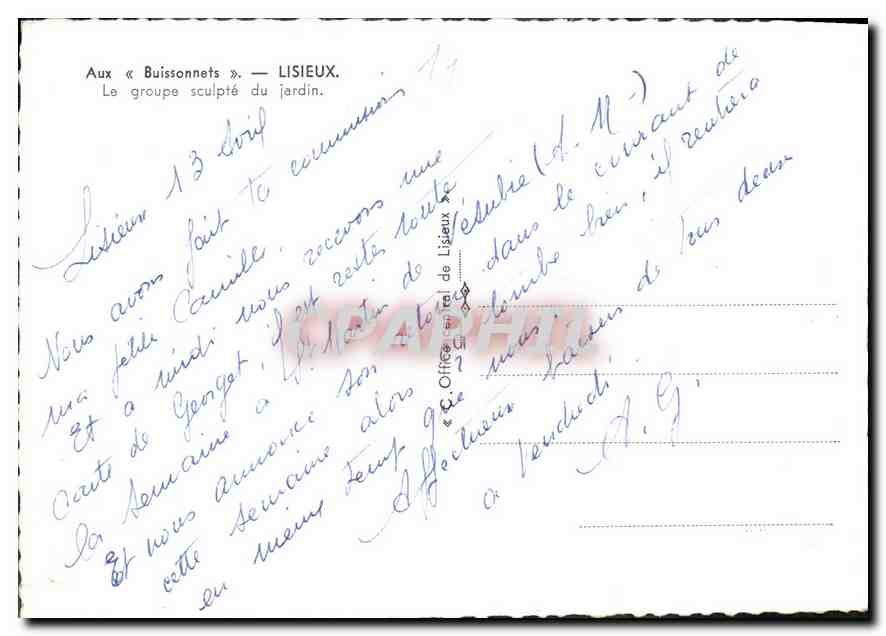 Aux « Buissonnets ». — LISIEUX.
Le groupe sculpté du jardin.
Lisieux 13 Avril
Nous avons fait ta commission
ma petite Camille.
Et a midi nous recevons une
carte de Georget, il est resté toute
la semaine a St Martin de Vésubie (A. M-)
Et nous annonce son retour dans le courant de
cette semaine alors ? tombe bien, il rentrera
en même temp que nous.
Affectueux baisers de tous deux
a Vendredi.
A. G.
« C. Office central de Lisieux »
CPAPHIL